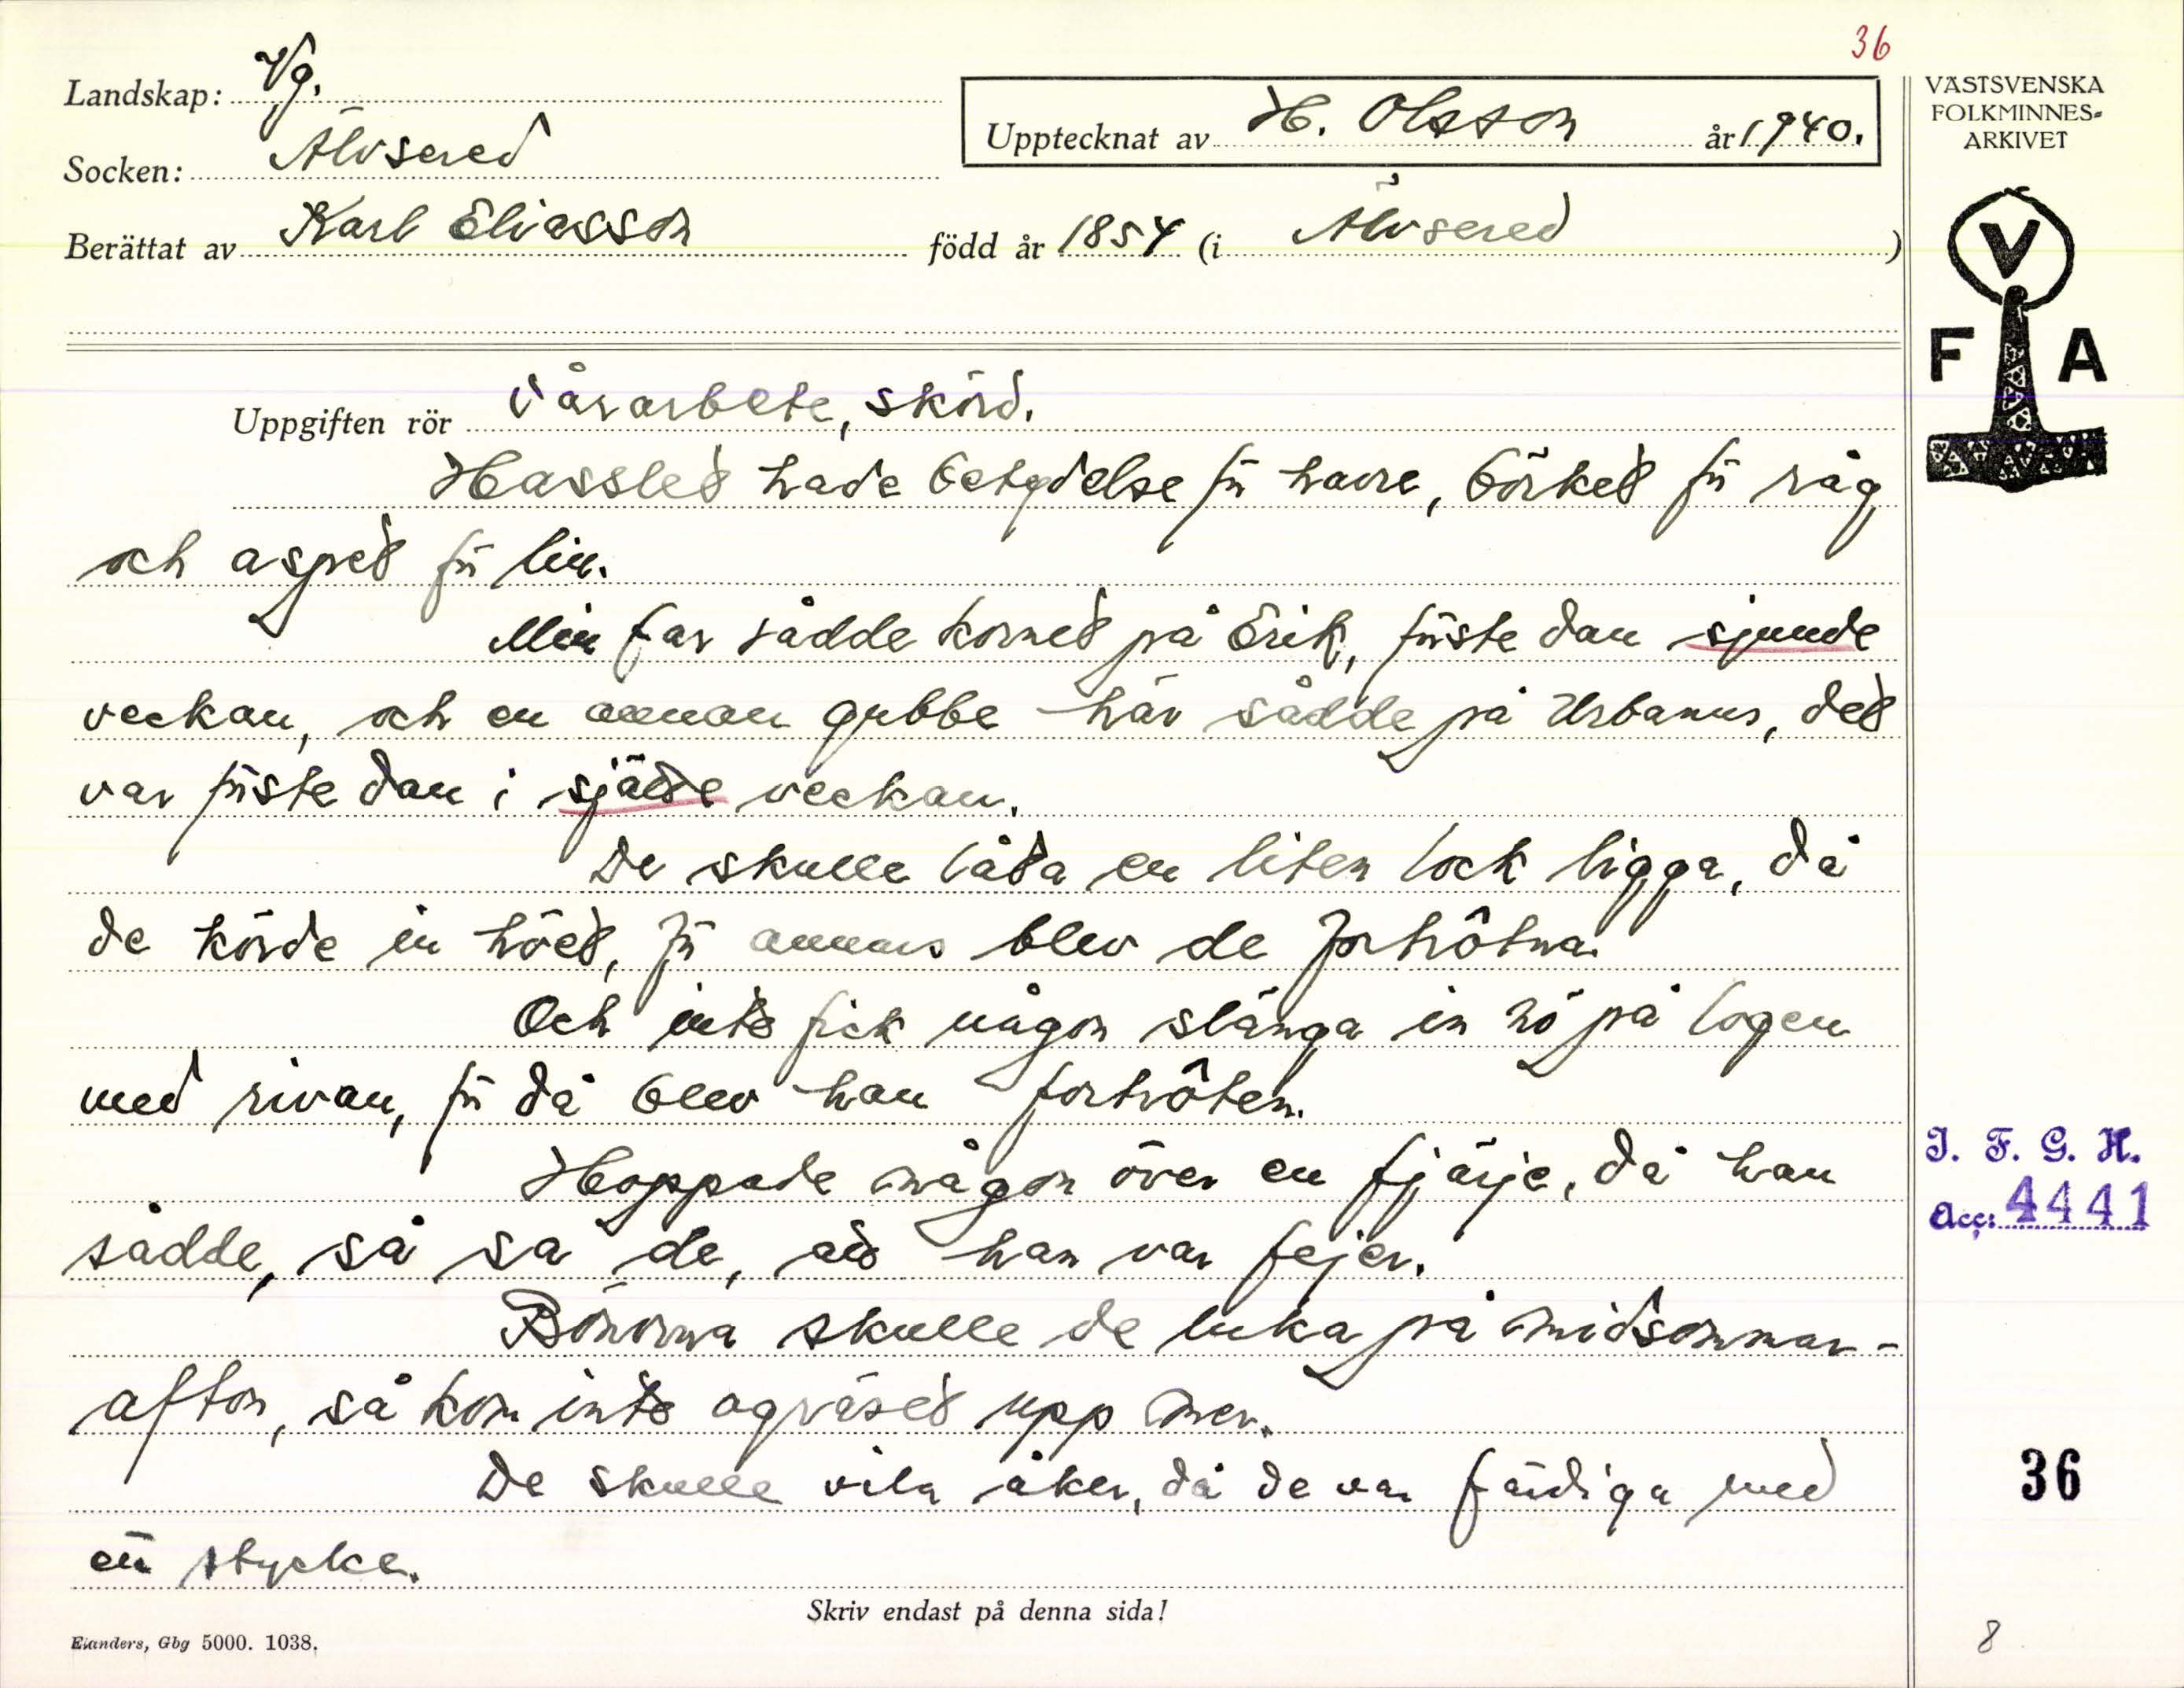 36
Landskap: Vg.
Socken: Älvsered
Upptecknat av H. Olsson år 1940.
Berättat av Karl Eliasson född år 1854 (i Älvsered)
VÄSTSVENSKA
FOLKMINNES-
ARKIVET
V
F A
Uppgiften rör Vårarbete, skörd.
Hasslet hade betydelse för havre, börket för råg
och aspet för lin.
Min far sådde kornet på Erik, förste dan sjunde
veckan, och en annan gubbe här sådde på Urbanus, det
var förste dan i själte veckan.
De skulle låta en liten lock ligga, då
de körde in höet, för annars blev de fortrôtna.
Och inte fick någon slänga in hö på logen
med rivan, för då blev han fortrôten.
Hoppade någon över en fjärje, då han
sådde, så sa de, att han var fejer.
Bönorna skulle de luka på midsommar-
afton, så kom inte ogräset upp mer.
De skulle vila åker, då de var färdiga med
ett stycke.
I. F. G. H.
Acc: 4441
36
Skriv endast på denna sida!
Elanders, Gbg 5000. 1038.
8